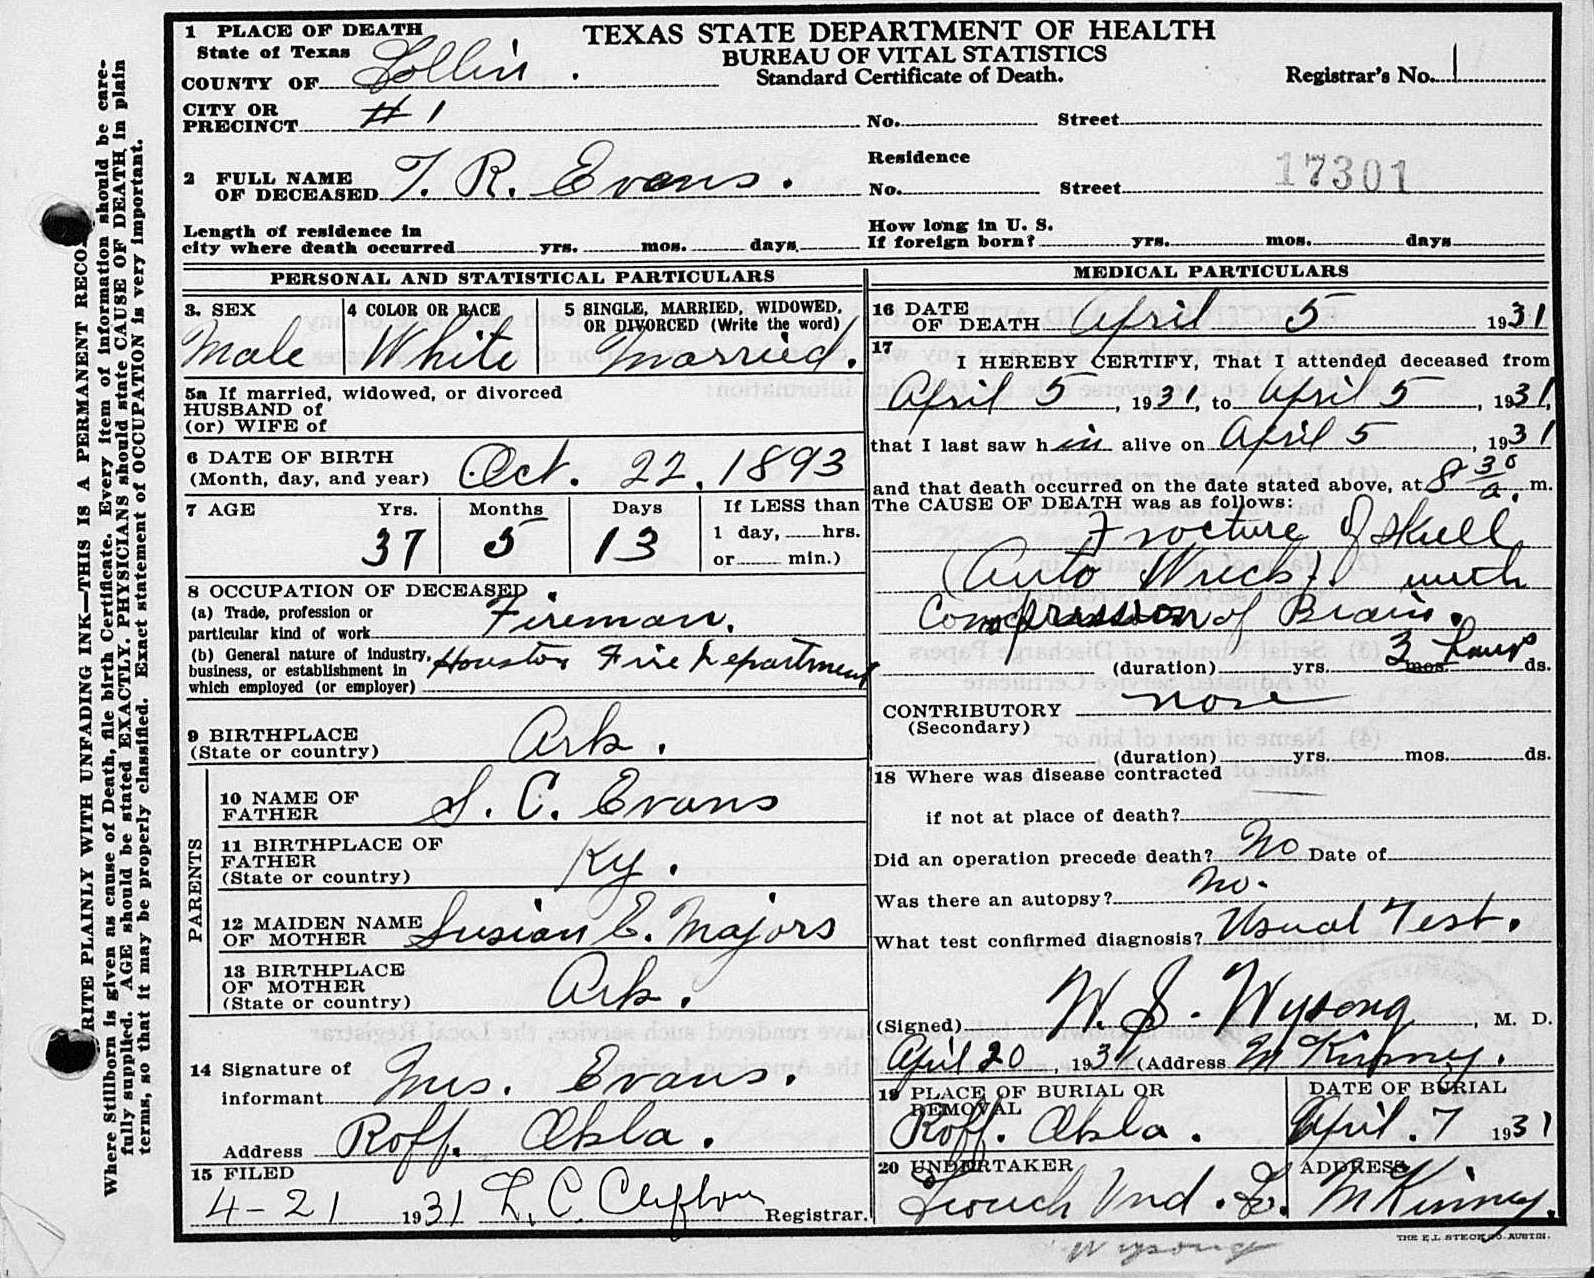 WRITE PLAINLY WITH UNFADING INK—THIS IS A PERMANENT RECO
Where Stillborn is given as cause of Death, file birth Certificate. Every item of information should be care-
fully supplied. AGE should be stated EXACTLY. PHYSICIANS should state CAUSE OF DEATH in plain
terms, so that it may be properly classified. Exact statement of OCCUPATION is very important.
TEXAS STATE DEPARTMENT OF HEALTH
BUREAU OF VITAL STATISTICS
Standard Certificate of Death.
Registrar's No. 1
1 PLACE OF DEATH
State of Texas
COUNTY OF Collin.
CITY OR
PRECINCT #1
No. Street
2 FULL NAME
OF DECEASED T. R. Evans.
Residence
No. Street 17301
Length of residence in
city where death occurred yrs. mos. days
How long in U. S.
If foreign born? yrs. mos. days
PERSONAL AND STATISTICAL PARTICULARS
3. SEX
Male
4 COLOR OR RACE
White
5 SINGLE, MARRIED, WIDOWED,
OR DIVORCED (Write the word)
married.
5a If married, widowed, or divorced
HUSBAND of
(or) WIFE of
6 DATE OF BIRTH
(Month, day, and year) Oct. 22, 1893
7 AGE Yrs. Months Days If LESS than
37 5 13 1 day, hrs.
or min.)
8 OCCUPATION OF DECEASED
(a) Trade, profession or
particular kind of work Fireman.
(b) General nature of industry,
business, or establishment in
which employed (or employer) Houston Fire Department
9 BIRTHPLACE
(State or country) Ark.
PARENTS
10 NAME OF
FATHER S. C. Evans
11 BIRTHPLACE OF
FATHER
(State or country) Ky.
12 MAIDEN NAME
OF MOTHER Susian E. Majors
13 BIRTHPLACE
OF MOTHER
(State or country) Ark.
14 Signature of
informant Mrs. Evans.
Address Roff. Okla.
15 FILED
4-21 1931 L. C. Clifton Registrar.
MEDICAL PARTICULARS
16 DATE
OF DEATH April 5 1931
17
I HEREBY CERTIFY, That I attended deceased from
April 5, 1931, to April 5, 1931,
that I last saw him alive on April 5, 1931
and that death occurred on the date stated above, at 8 30 a. m.
The CAUSE OF DEATH was as follows:
Fracture of Skull
(Auto Wreck). with
Compression of Brain.
(duration) yrs. mos. 3 hours ds.
CONTRIBUTORY none
(Secondary)
(duration) yrs. mos. ds.
18 Where was disease contracted
if not at place of death?
Did an operation precede death? No Date of
Was there an autopsy? No.
What test confirmed diagnosis? Usual Test.
(Signed) W. S. Wysong, M. D.
April 20, 1931 (Address McKinney.
19 PLACE OF BURIAL OR
REMOVAL
Roff. Okla.
DATE OF BURIAL
April. 7 1931
20 UNDERTAKER
Und. Co.
ADDRESS
McKinney.
THE E.L. STECK CO. AUSTIN.
Wysong